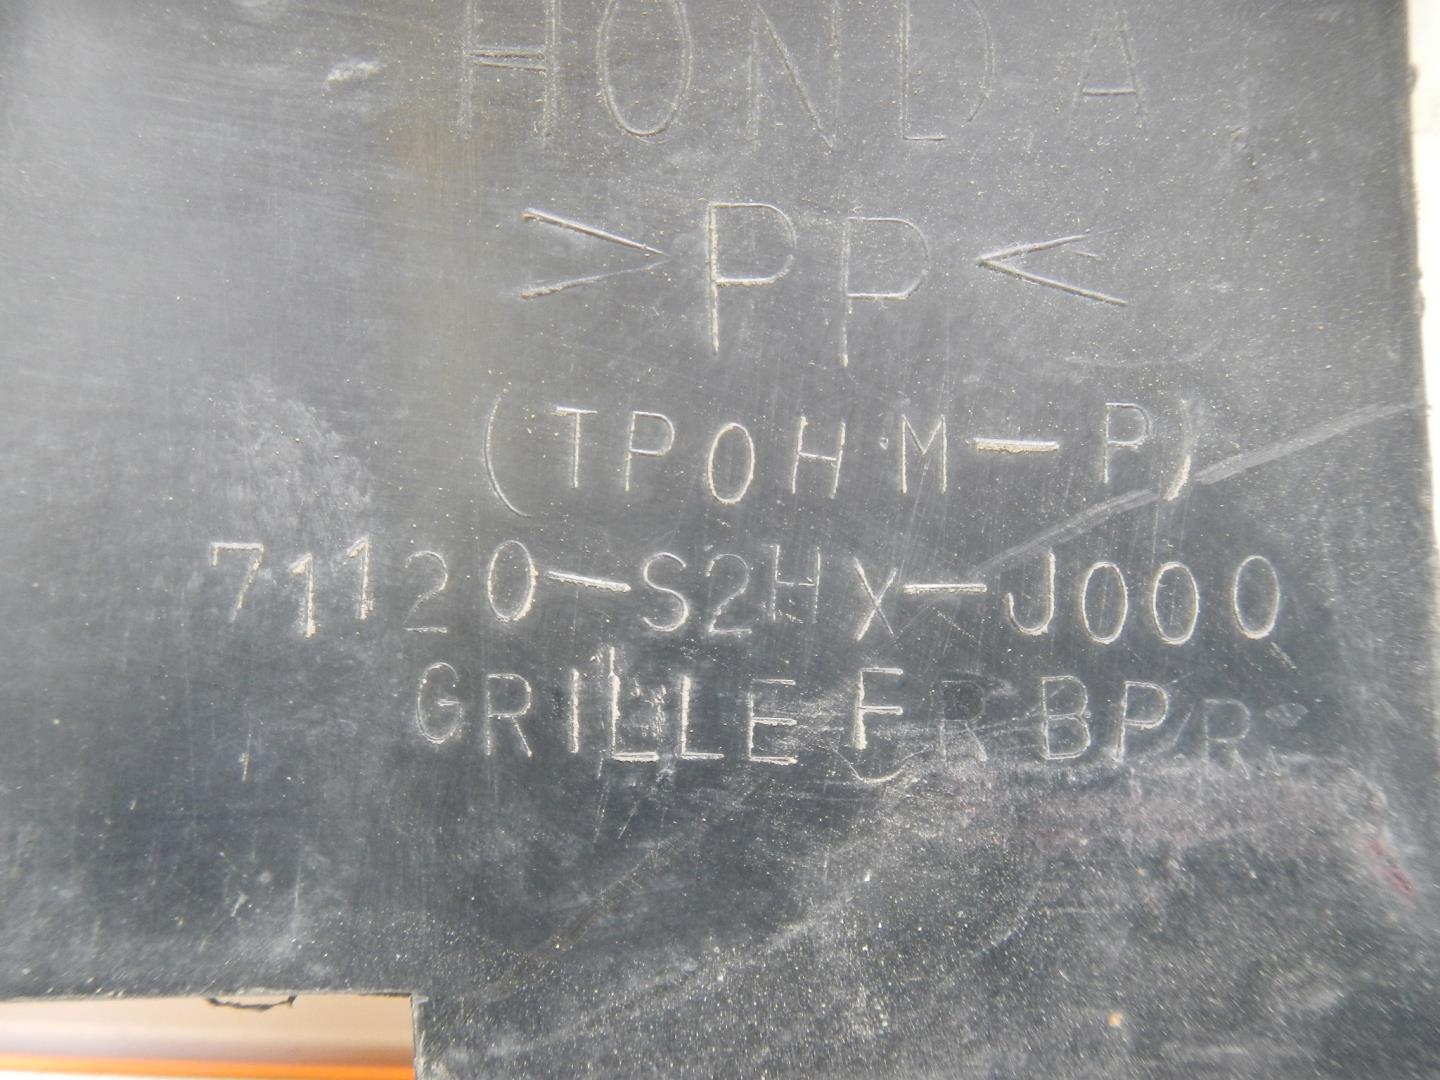 HONDA
>PP<
(TPOHM-P)
71120-S2HX-J000
GRILLE FR BPR